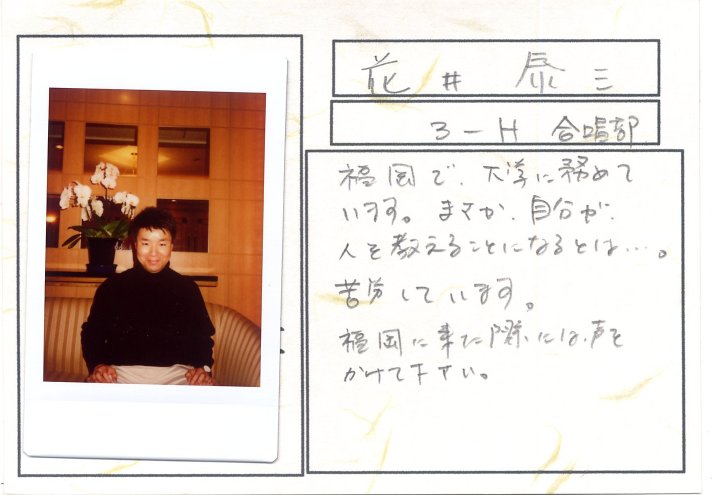 花井 泰三
3-H 合唱部
福岡で、大学に務めて
います。まさか、自分が、
人を教えることになるとは…。
苦労しています。
福岡に来た際には、声を
かけて下さい。